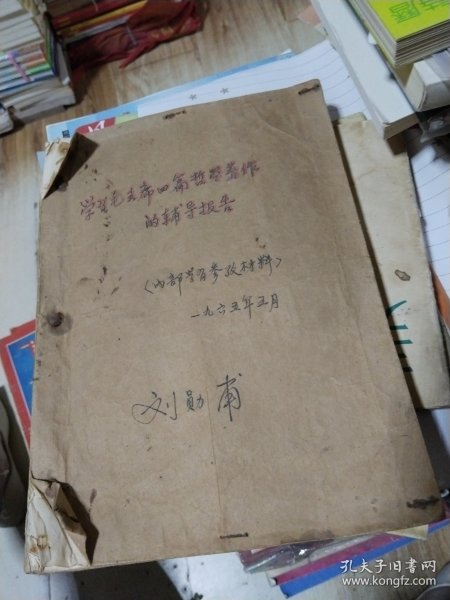 学习毛主席四篇哲学著作
的辅导报告
（内部学习参考材料）
一九六五年五月
刘勋甫
孔夫子旧书网
www.kongfz.com